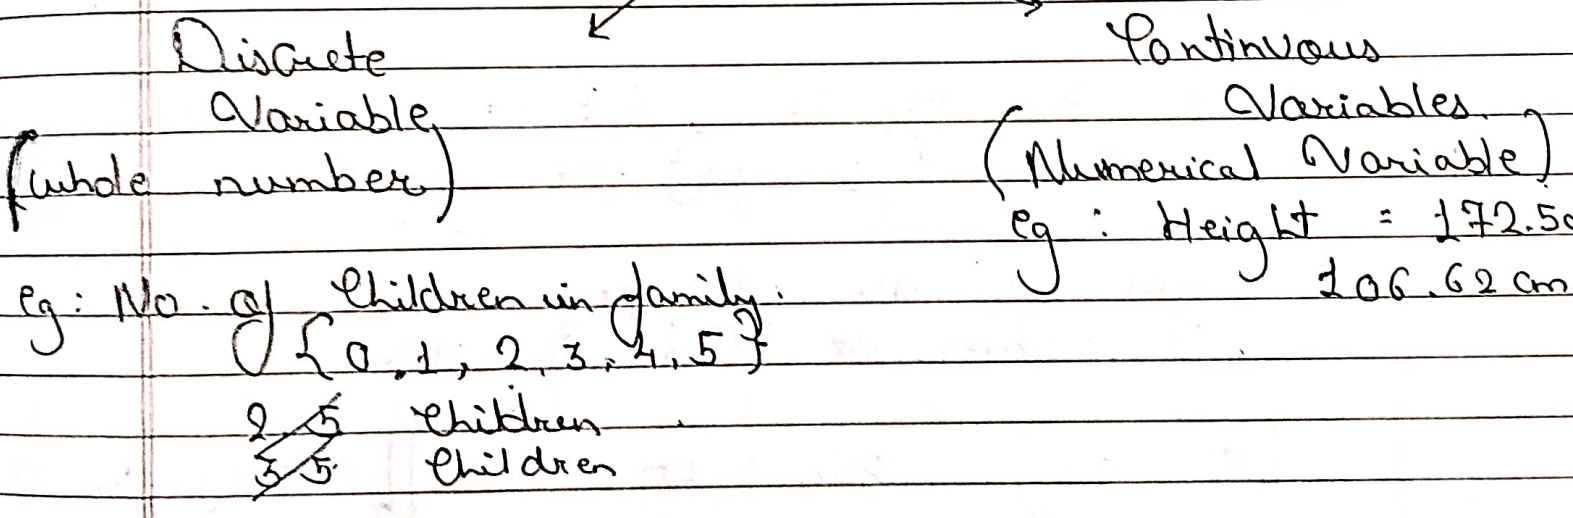 Discrete
Variable
(whole number)
eg: No. of Children in family.
{0,1,2,3,4,5}
2.5 Children
3.5 Children
Continuous
Variables
(Numerical Variable)
eg: Height = 172.5c
106.62 cm